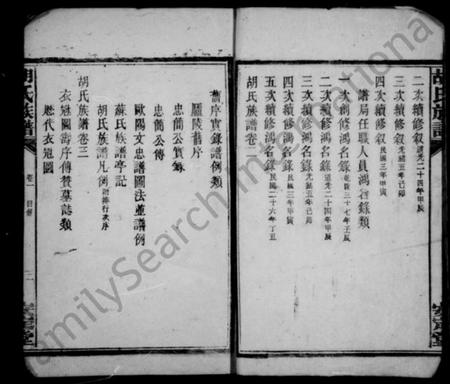 胡氏族譜
二次續修敘道光二十四年甲辰
三次續修敘光緒五年己卯
四次續修敘民國三年甲寅
譜局任職人員鴻名錄類
次創修鴻名錄乾隆三十七年壬辰
二次續修鴻名錄道光二十四年甲辰
三次續修鴻名錄光緒五年己卯
四次續修鴻名錄民國三年甲寅
五次續修鴻名錄民國二十六年丁丑
胡氏族譜卷二
舊序實錄譜例類
廬陵舊序
忠簡公實錄
忠簡公傳
歐陽文忠譜圖法並譜例
蘇氏族譜亭記
胡氏族譜凡例附排行次序
胡氏族譜卷三
衣冠圖壽序傳贊墓誌類
歷代衣冠圖
胡氏族譜
卷一
目錄
安定堂
FamilySearch International